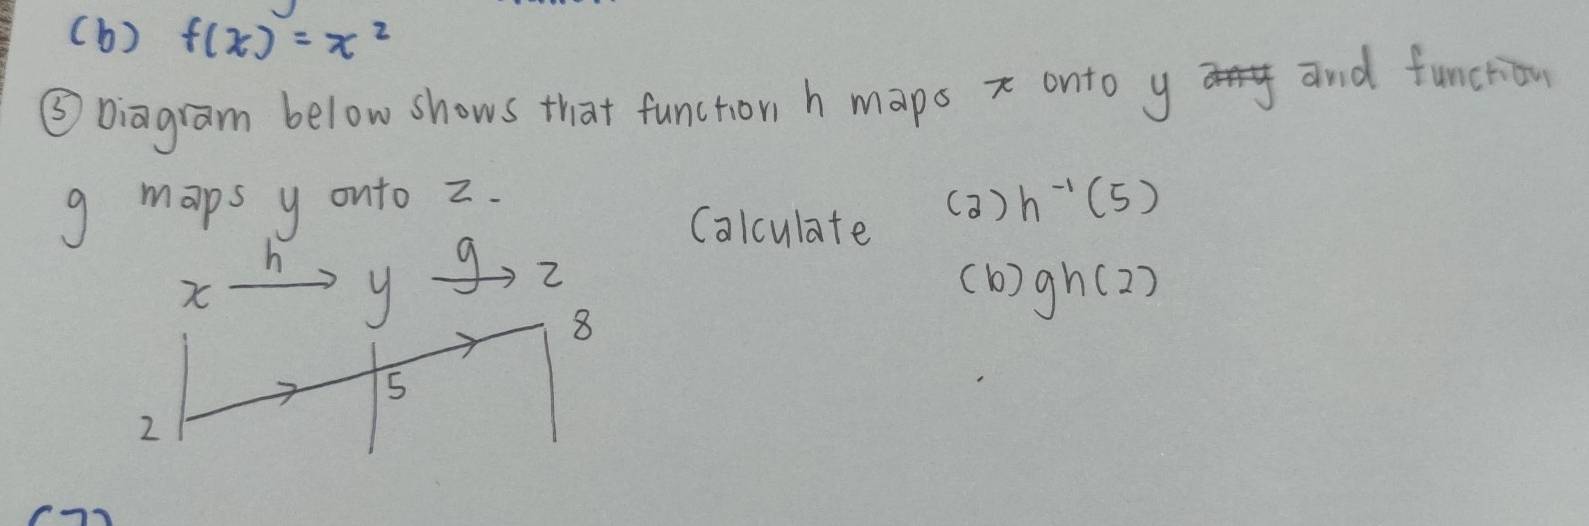 (b) f(x) = x²
⑤ Diagram below shows that function h maps x onto y and function
g maps y onto z.
Calculate (a) h⁻¹(5)
(b) gh(2)
x →h y →g z
8
5
2